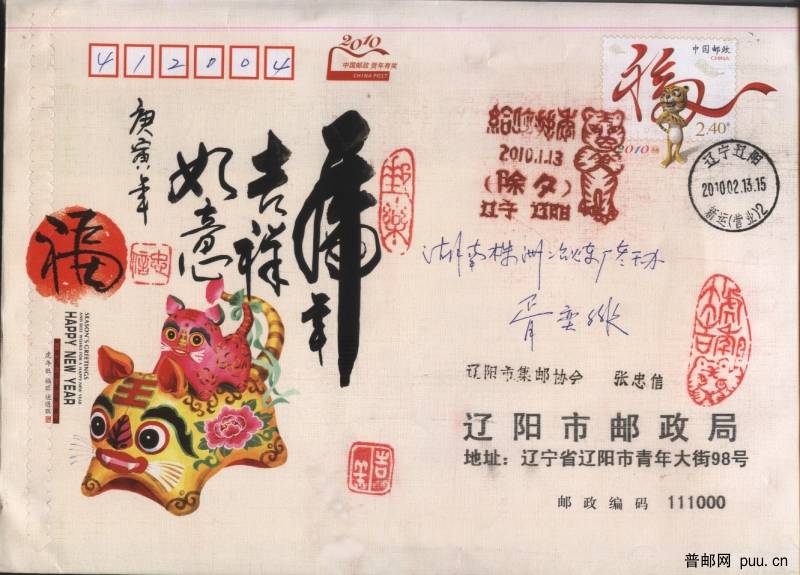 412004
2010
中国邮政 贺年有奖
CHINA POST
中国邮政
CHINA
福
2010
2.40元
2010.1.13
(除夕)
辽宁 辽阳
辽宁辽阳
2010.02.13.15
新运(营业)2
庚寅年
吉祥
如意
虎年
福
忠信
SEASON'S GREETINGS
AND BEST WISHES FOR A HAPPY NEW YEAR
HAPPY NEW YEAR
王
湖南株洲
辽阳市集邮协会 张忠信
辽阳市邮政局
地址：辽宁省辽阳市青年大街98号
邮政编码 111000
普邮网 puu.cn